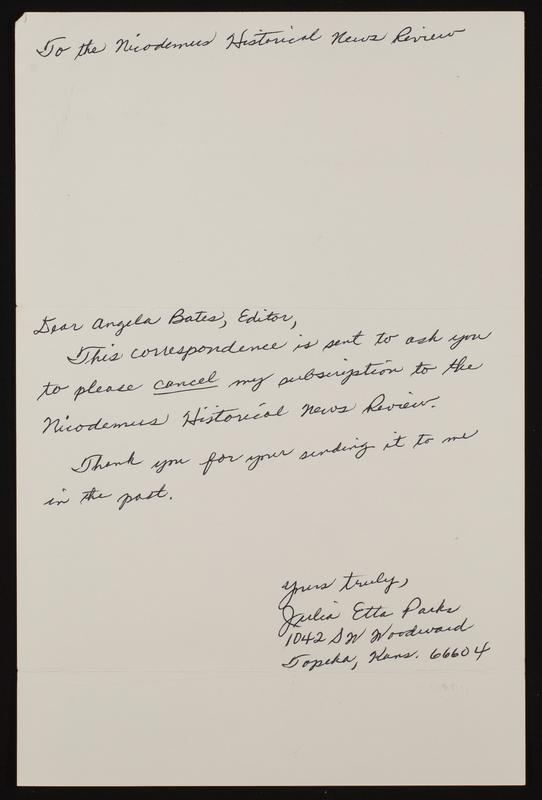 To the Nicodemus Historical News Review
Dear Angela Bates, Editor,
This correspondence is sent to ask you
to please cancel my subscription to the
Nicodemus Historical News Review.
Thank you for your sending it to me
in the past.
Yours truly,
Julia Etta Parks
1042 SW Woodward
Topeka, Kans. 66604